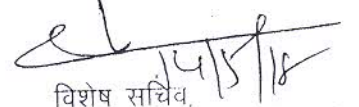 14/5/18
विशेष सचिव,